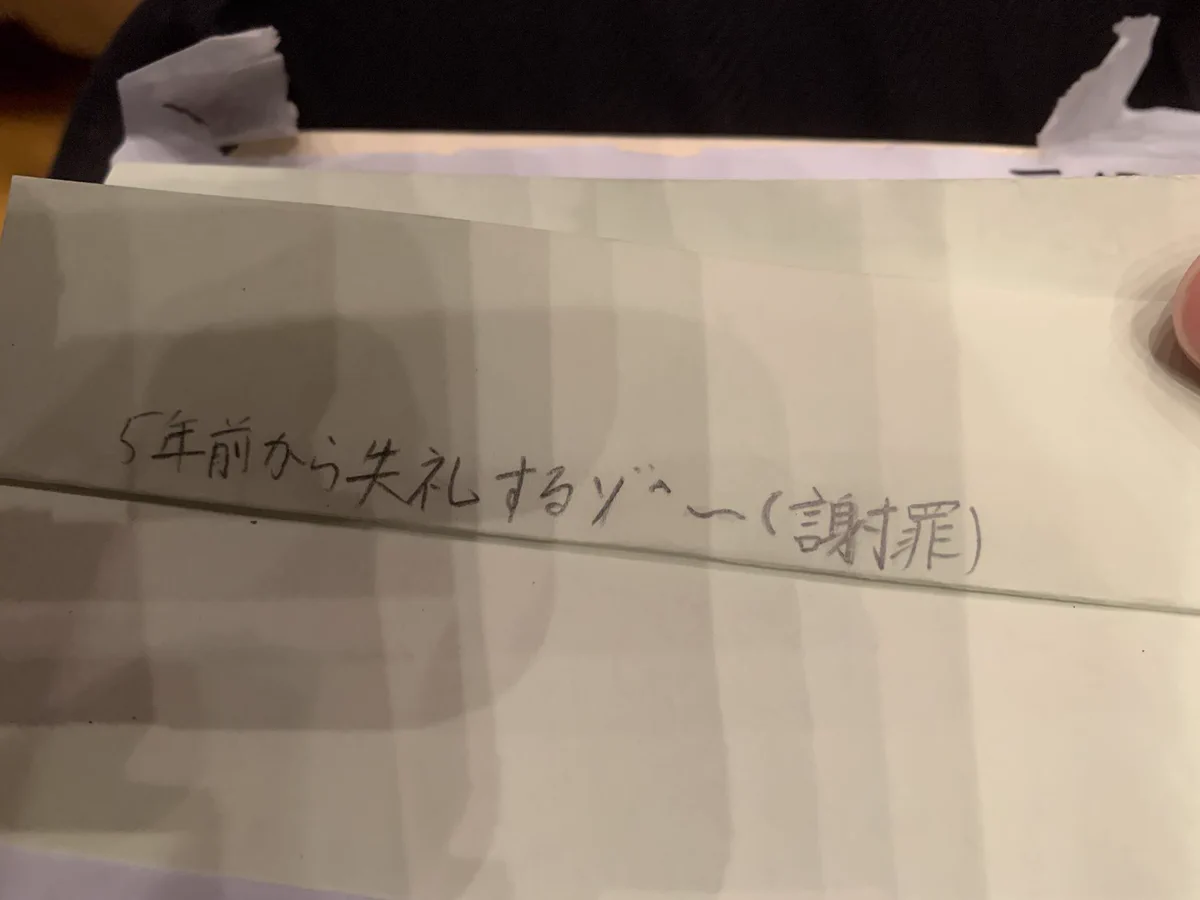 5年前から失礼するゾ^〜(謝罪)